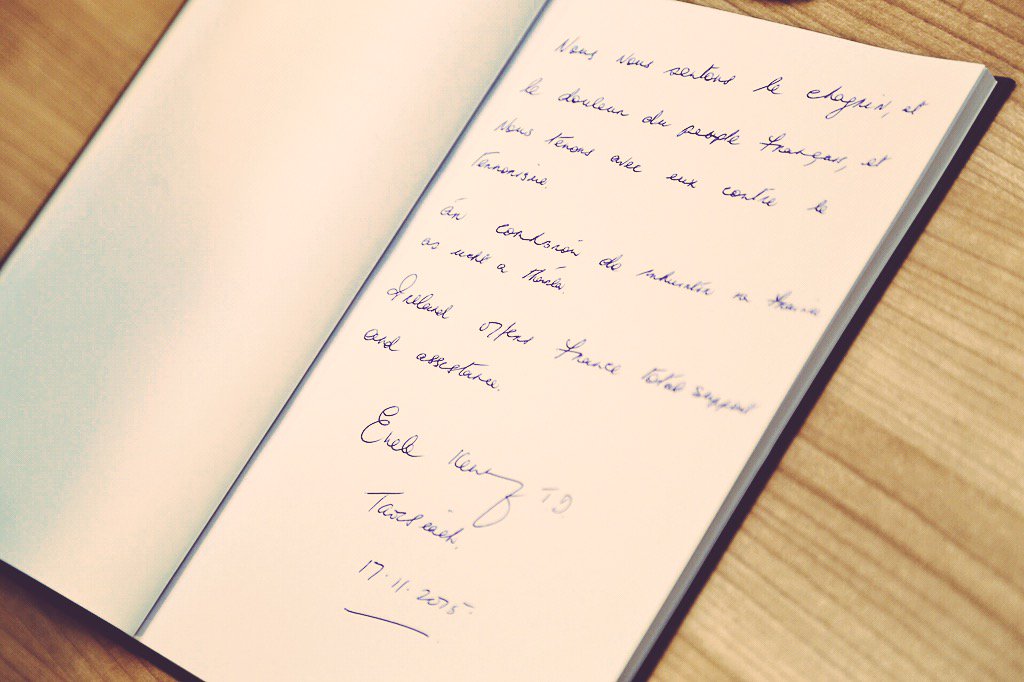 Nous nous sentons le chagrin, et
le douleur du people français, et
nous tenons avec eux contre le
terrorisme.
ár do muintir na
as ucht a
Ireland offers France total support
and assistance.
Enda Kenny TD
Taoiseach.
17.11.2015